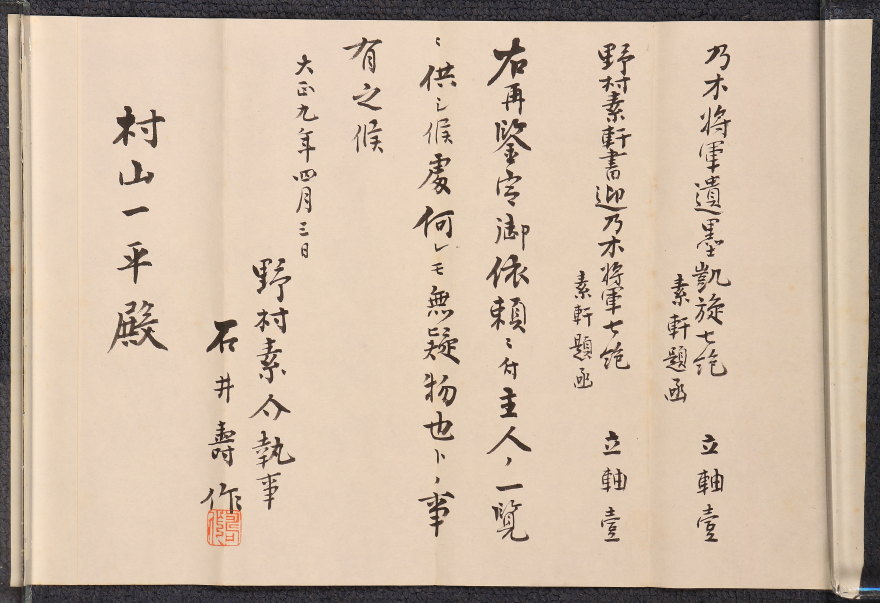 乃木将軍遺墨凱旋七絶 立軸壹
素軒題函
野村素軒書迎乃木将軍七絶 立軸壹
素軒題函
右再鑒定御依頼ニ付主人ノ一覧
ニ供シ候處何レモ無疑物也トノ事
有之候
大正九年四月三日
野村素介執事
石井壽作
村山一平殿